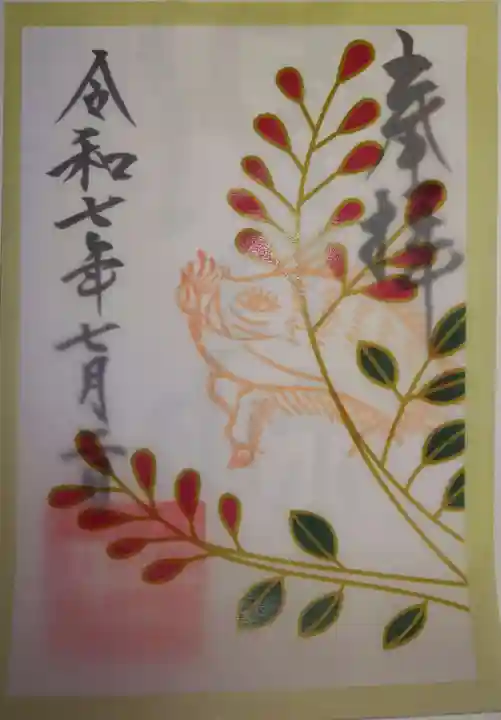 奉拝
令和七年七月二日